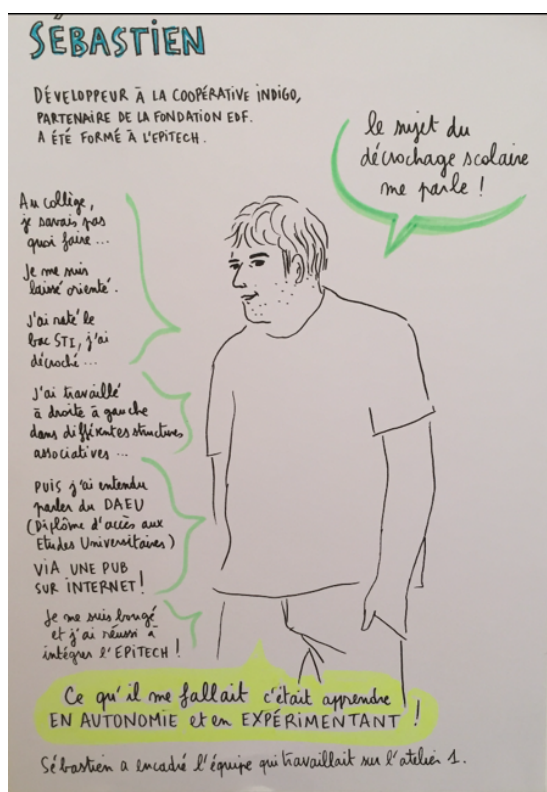 SÉBASTIEN
DÉVELOPPEUR À LA COOPÉRATIVE INDIGO,
PARTENAIRE DE LA FONDATION EDF.
A ÉTÉ FORMÉ À L'EPITECH.
le sujet du
décrochage scolaire
me parle !
Au collège,
je savais pas
quoi faire ...
Je me suis
laissé orienté.
J'ai raté le
bac STI, j'ai
décroché ...
J'ai travaillé
à droite à gauche
dans différentes structures
associatives ...
PUIS j'ai entendu
parler du DAEU
(Diplôme d'accès aux
Etudes Universitaires)
VIA UNE PUB
SUR INTERNET !
Je me suis bougé
et j'ai réussi à
intégrer l'EPITECH !
Ce qu'il me fallait c'était apprendre
EN AUTONOMIE et en EXPÉRIMENTANT !
Sébastien a encadré l'équipe qui travaillait sur l'atelier 1.